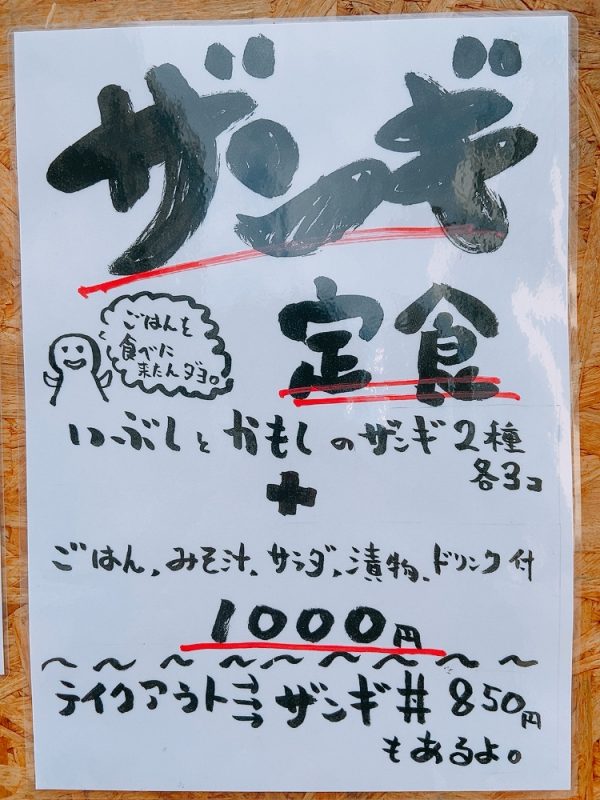 ザンギ
定食
ごはんを
食べに
来たんダヨ。
いぶしとかもしのザンギ2種
各3コ
+
ごはん、みそ汁、サラダ、漬物、ドリンク付
1000円
〜〜〜〜〜〜〜〜〜
テイクアウト⇒ザンギ丼850円
もあるよ。